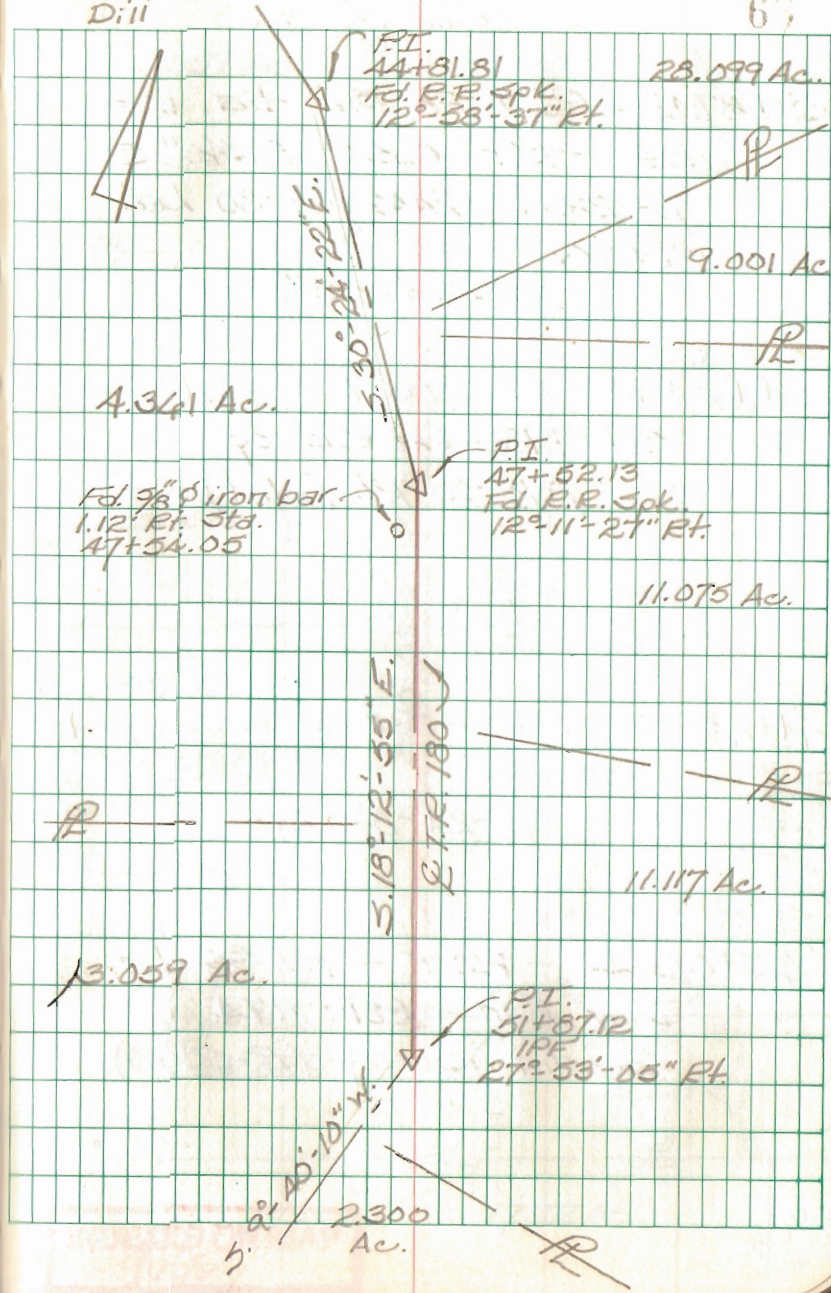 Dill
6
P.I.
44+81.81
Fd. R.R. Spk.
12°-58'-37" Rt.
28.099 Ac.
PL
S. 30°-24'-22" E.
9.001 Ac
PL
4.341 Ac.
P.I.
47+52.13
Fd. R.R. Spk.
12°-11'-27" Rt.
Fd. 5/8" ø iron bar
1.12' Rt. Sta.
47+54.05
11.075 Ac.
S. 18°-12'-55" E.
℄ T.R. 180
PL
PL
11.117 Ac.
3.059 Ac.
P.I.
51+87.12
IPF
27°-53'-05" Rt.
S. 9°-40'-10" W.
2.300
Ac.
PL